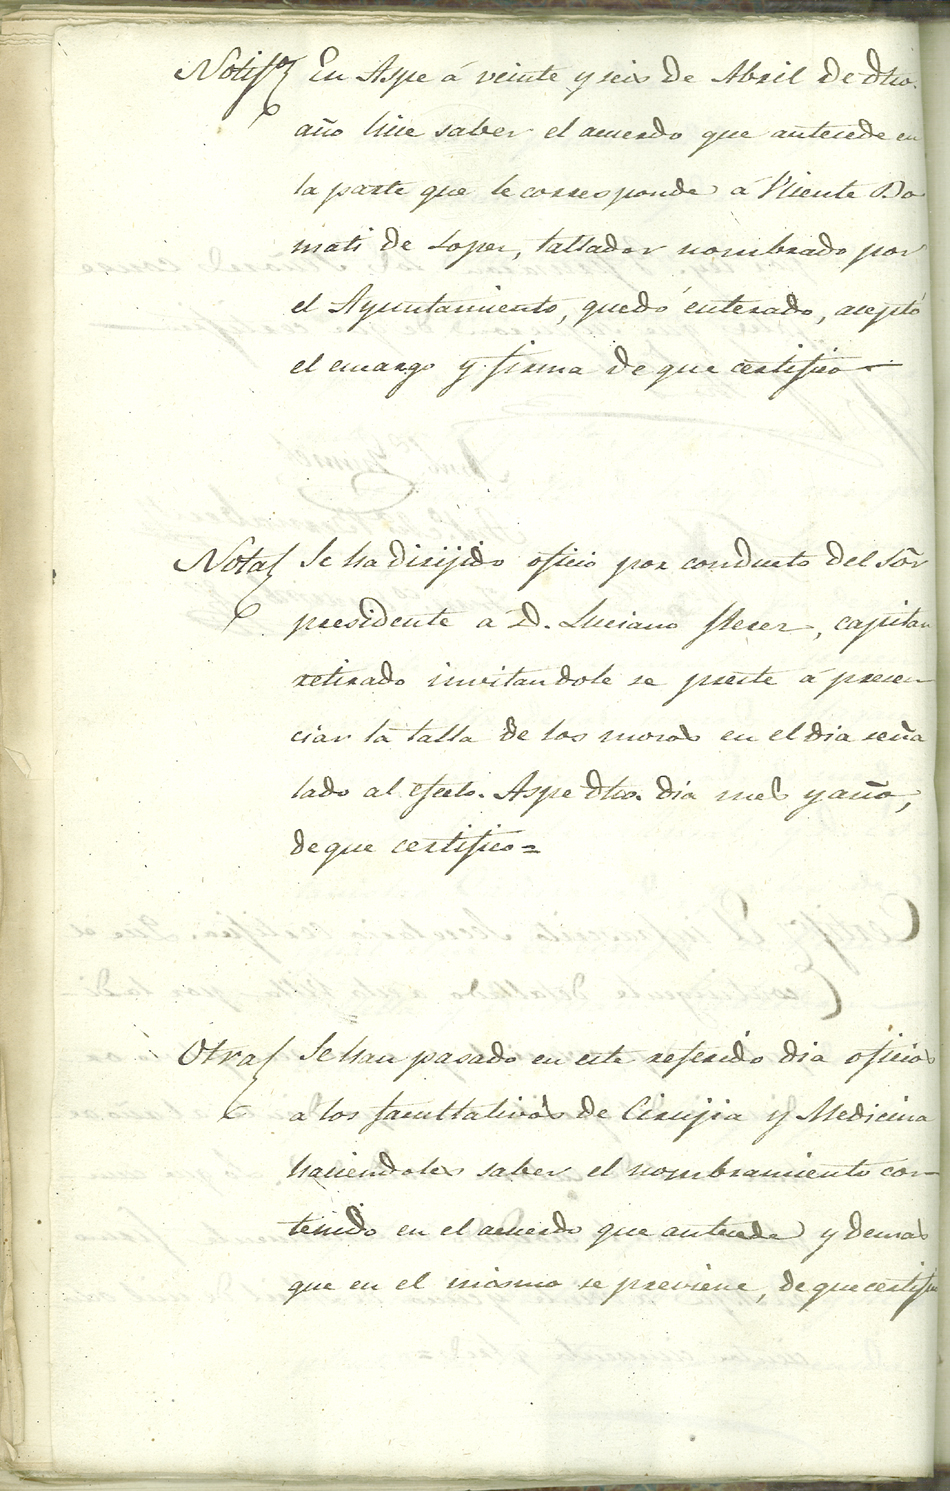 Notifon En Aspe á veinte y seis de Abril de dho.
año hice saber el acuerdo que antecede en
la parte que le corresponde á Vicente Bo
mati de Soper, tallador nombrado por
el Ayuntamiento, quedó enterado, aceptó
el encargo y firma de que certifico
Nota Se ha dirijido oficio por conducto del Sõr
presidente á D. Luciano capitan
retirado invitandole se preste á presen
ciar la talla de los mozos en el dia seña
lado al efecto. Aspe dho. dia mes y año,
de que certifico=
Otra Se han pasado en este referido dia oficios
a los facultativos de Cirujia y Medicina
haciendoles saber el nombramiento con
tenido en el acuerdo que antecede y demas
que en el mismo se previene, de que certifico